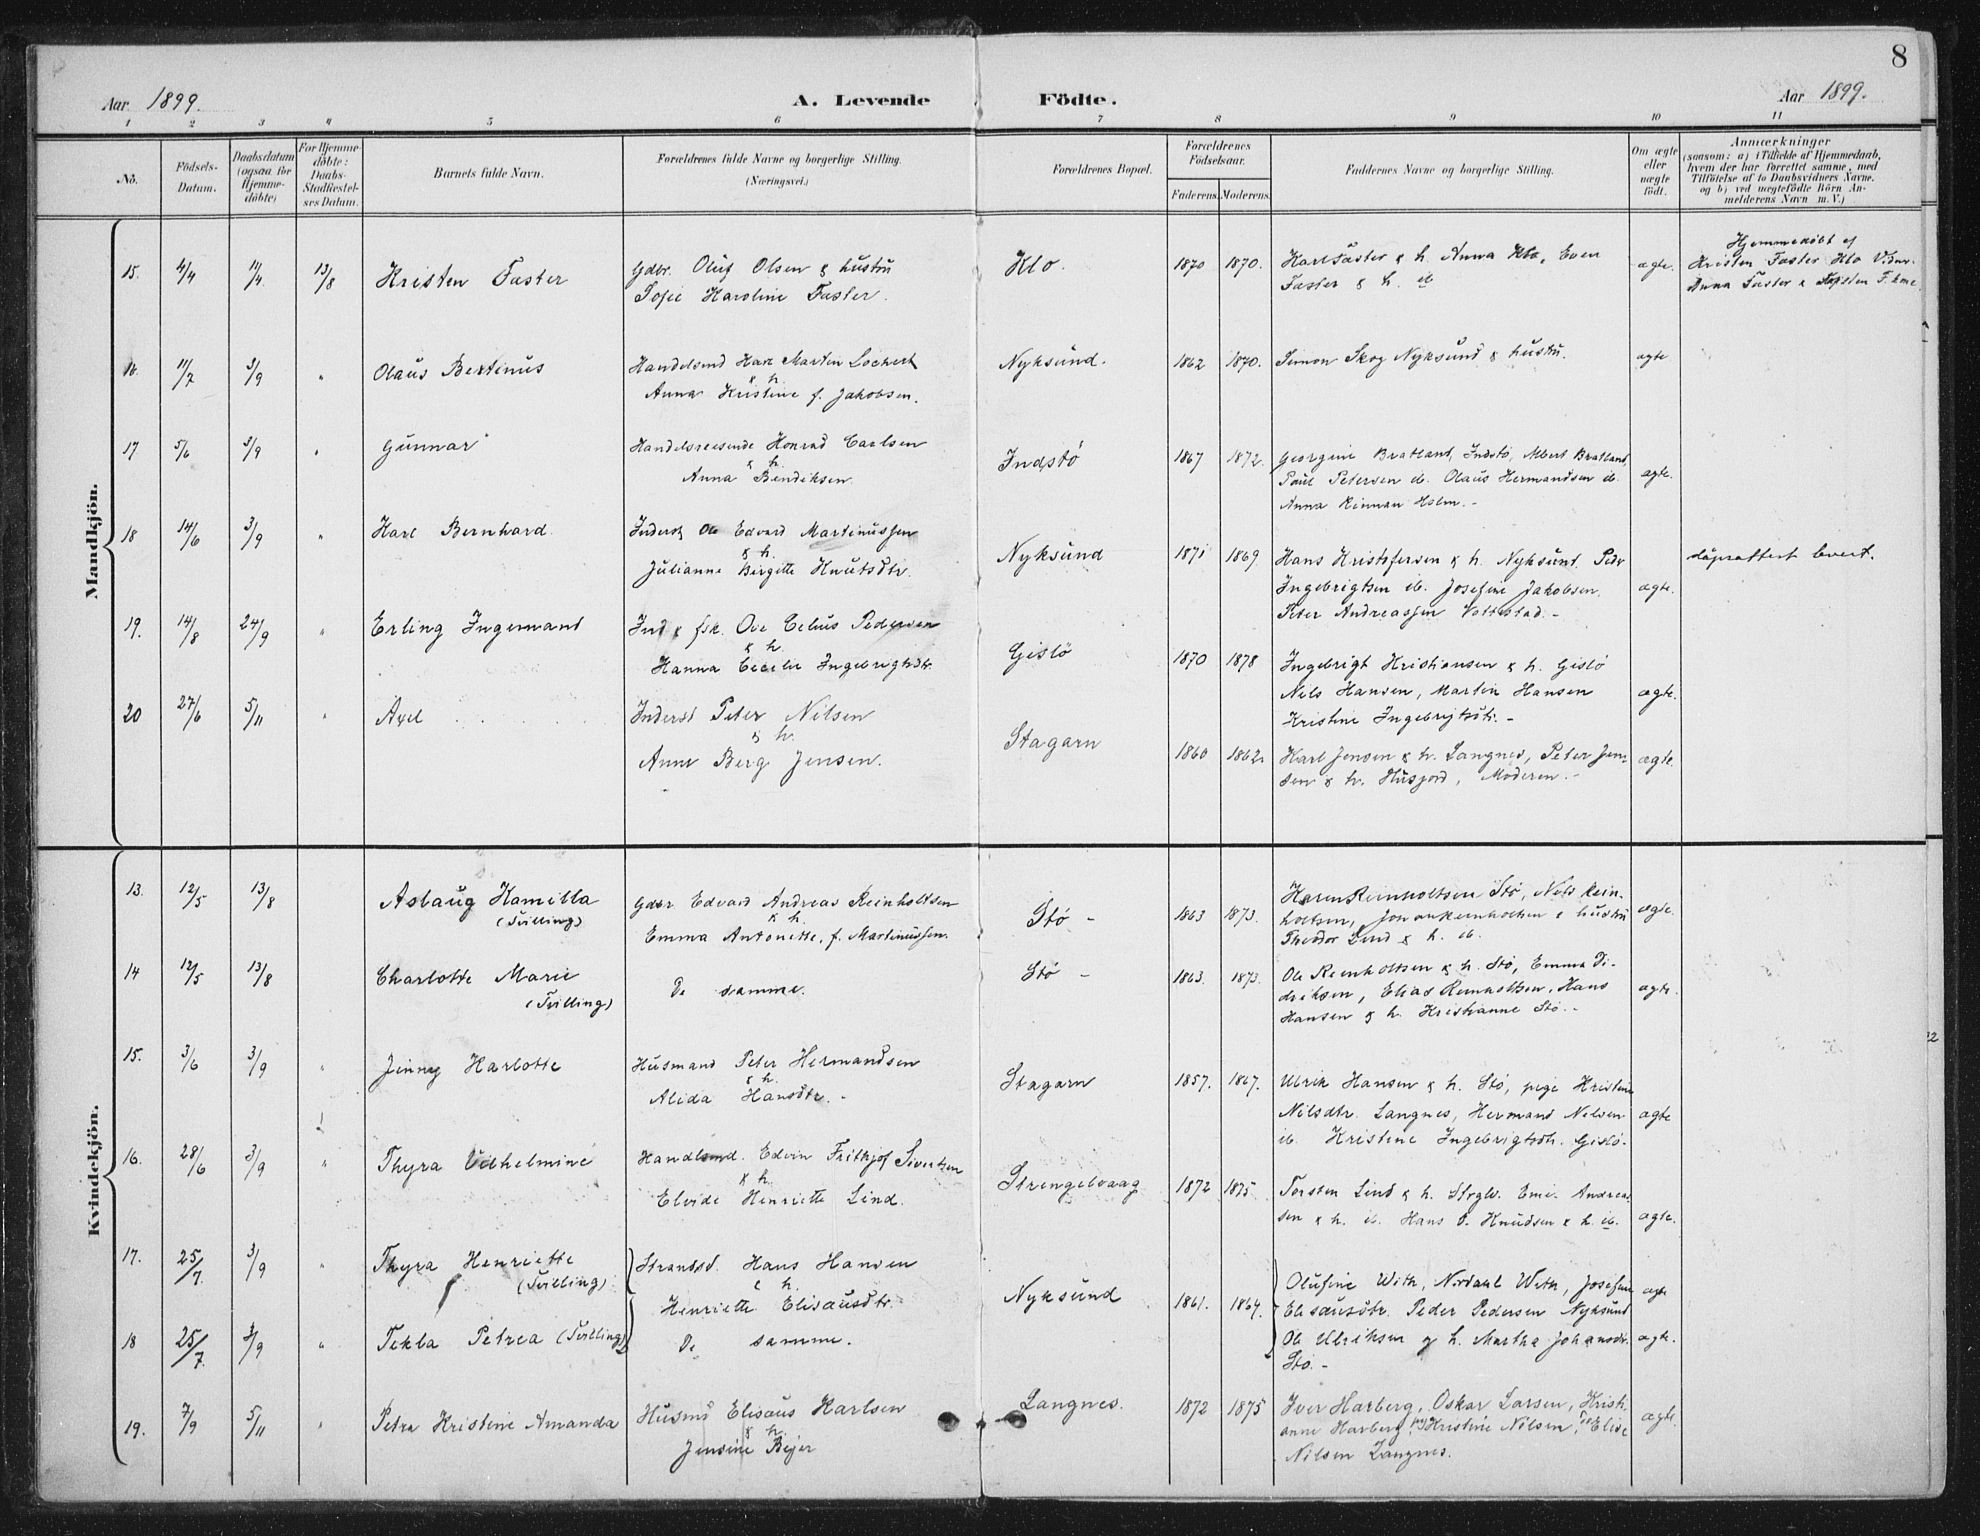 8
Aar 1899.
A. Levende Födte.
Aar 1899.
1 2 3 4 5 6 7 8 9 10 11
No.
Födsels-Datum.
Daabsdatum (ogsaa for Hjemme-döbte)
For Hjemme-döbte: Daabs-Stadfæstel-ses Datum.
Barnets fulde Navn.
Forældrenes fulde Navne og borgerlige Stilling.
(Næringsvei.)
Forældrenes Bopæl.
Forældrenes Födselsaar.
Faderens. Moderens.
Faddernes Navne og borgerlige Stilling.
Om ægte eller uægte födt.
Anmærkninger
(saasom: a) i Tilfælde af Hjemmedaab, hvem der har forrettet samme, med Tilföielse af to Daabsvidners Navne, og b) ved uægtefödte Börn An-melderens Navn m. V.)
Mandkjön.
15. 4/4 11/4 13/8 Kristen Faster
Gdbr. Oluf Olsen & hustru
Sofie Karoline Faster.
Klo. 1870 1870.
Karl Faster & h. Anna Klo, Even
Faster & h. ib.
ægte.
Hjemmedøbt af
Kristen Faster Klo Vidner
Anna Faster &
16. 11/7 3/9 " Olaus Bertinus
Handelsmd Karl Martin Lockert
& h.
Anna Kristine f. Jakobsen.
Nyksund. 1862 1870.
Simon Skog Nyksund & hustru.
ægte
17 5/6 3/9 " Gunnar
Handelsreisende Konrad Carlsen
& h.
Anna Bendiksen.
Indstø 1867 1872.
Georgine Bratland, Indstø, Albert Bratland,
Paul Petersen ib. Olaus Hermandsen ib.
Anna Kinnan Holm. -
ægte.
18 14/6 3/9 " Karl Bernhard.
Inderst Ole Edvard Martinussen
& h.
Julianne Birgitte Knutsdtr.
Nyksund 1871 1869
Hans Kristofersen & h. Nyksund. Peder
Ingebrigtsen ib. Josefine Jakobsen.
Peter Andreassen Vottestad. -
ægte.
dåpsattest levert.
19. 14/8 24/9 " Erling Ingemann
Ind & fsk. Ove Celius Pedersen
& h.
Hanna Cecelie Ingebrigtsdtr.
Gislø 1870 1878
Ingebrigt Kristiansen & h. Gislø
Nils Hansen, Martin Hansen
Kristine Ingebrigtsdtr. -
ægte.
20 27/6 5/11 " Axel
Inderst Peter Nilsen
& h.
Anne Berg Jensen.
Stagarn 1860 1862
Karl Jensen & h. Langnes, Peter Jen-
sen & h. Husjord, Moderen. -
ægte.
Kvindekjön.
13. 12/5 13/8 Aslaug Kamilla
(Tvilling)
Gdbr Edvard Andreas Reinholtsen
& h.
Emma Antonette, f. Martinussen.
Stø - 1863 1873.
Karen Reinholtsen Stø, Nils Rein-
holtsen, Johan Reinholtsen & hustru
Theodor Lind & h. ib.
ægte.
14 12/5 13/8 Charlotte Marie
(Tvilling)
De samme.
Stø - 1863. 1873.
Ole Reinholtsen & h. Stø, Emma Di-
driksen, Elias Reinholtsen, Hans
Hansen & h. Kristianne Stø. -
ægte.
15. 3/6 3/9 " Jenny Karlotte
Husmand Peter Hermandsen
& h.
Alida Hansdtr. -
Stagarn 1857. 1867.
Ulrik Hansen & h. Stø, pige Kristine
Nilsdtr. Langnes, Hermand Nilsen
ib. Kristine Ingebrigtsdtr. Gislø.
ægte
16. 28/6 3/9 " Thyra Vilhelmine
Handlsmd. Edvin Frithjof Sivertsen
& h.
Elvide Henriette Lind.
Strengelvaag 1872 1875
Torsten Lind & h. Strglv. Emil Andreas-
sen & h. ib. Hans P. Knudsen & h. ib.
ægte.
17. 25/7 3/9 " Thyra Henriette
(Tvilling)
Strandsd. Hans Hansen
& h.
Henriette Elisausdtr.
Nyksund 1861. 1864.
Olufine With, Nordahl With, Josefine
Elisausdtr. Peder Pedersen Nyksund
ægte
18 25/7. 3/9 " Tekla Petrea (Tvilling)
De samme.
Ole Ulriksen & h. Martha Johansdtr.
Stø. -
ægte.
19. 7/9 5/11 " Petra Kristine Amanda
Husmd Elisæus Karlsen
& h.
Jensine Bejer
Langnes. 1872 1875
Iver Harberg, Oskar Larsen, Kristi-
anne Harberg, Kristine Nilsen, Elise
Nilsen Langnes.
ægte.